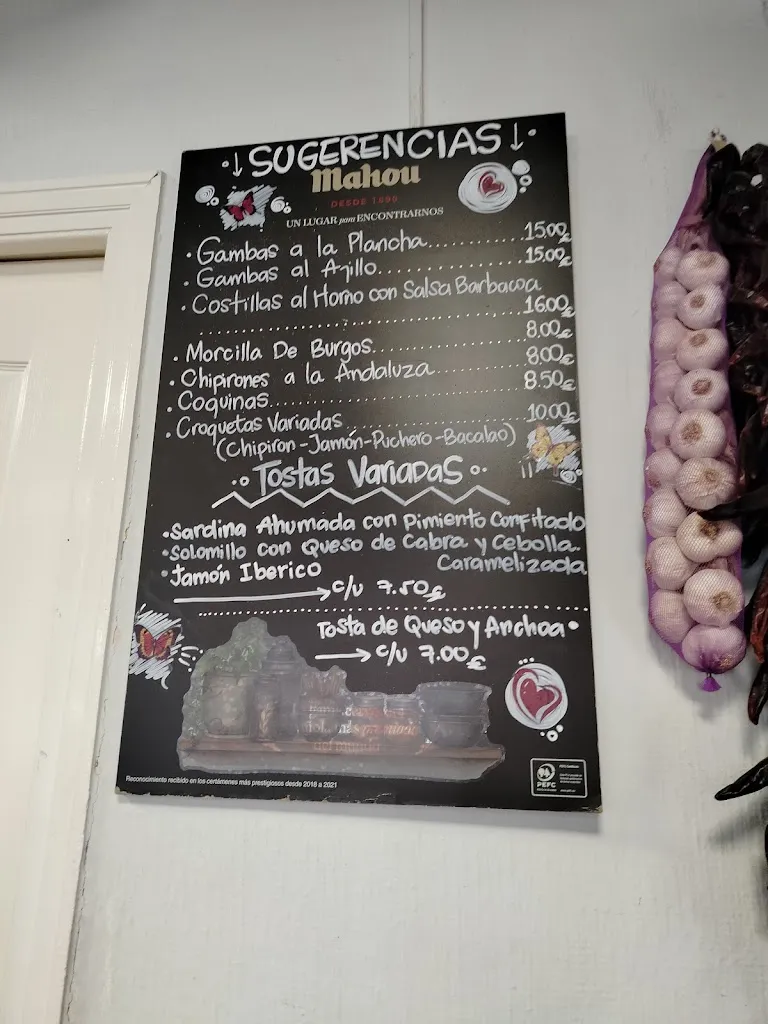 ↓ SUGERENCIAS ↓
Mahou
DESDE 1890
UN LUGAR para ENCONTRARNOS
· Gambas a la Plancha.......... 15.00€
· Gambas al Ajillo.......... 15.00€
· Costillas al Horno con Salsa Barbacoa
.......... 16.00€
· Morcilla De Burgos.......... 8.00€
· Chipirones a la Andaluza.......... 8.00€
· Coquinas.......... 8.50€
· Croquetas Variadas.......... 10.00€
(Chipiron-Jamón-Puchero-Bacalao)
Tostas Variadas
· Sardina Ahumada con Pimiento Confitado
· Solomillo con Queso de Cabra y Cebolla
Caramelizada
· Jamón Iberico
→ c/u 7.50€
Tosta de Queso y Anchoa •
→ c/u 7.00€
Reconocimiento recibido en los certámenes más prestigiosos desde 2016 a 2021
PEFC